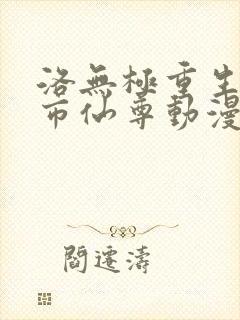 洛無極重生
市仙尊動漫
閻遷濤